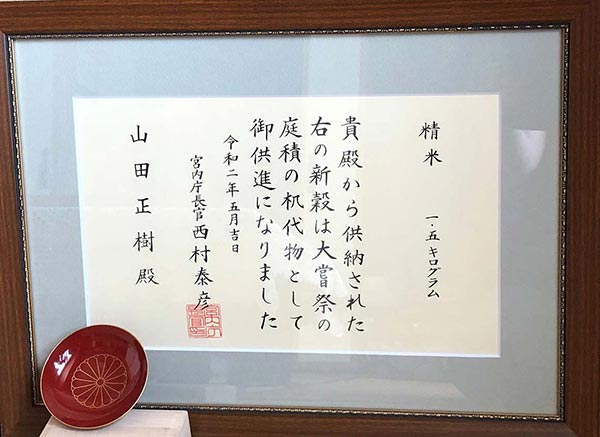 精米 一・五キログラム
貴殿から供納された
右の新穀は大嘗祭の
庭積の机代物として
御供進になりました
令和二年五月吉日
宮内庁長官 西村泰彦
山田正樹殿